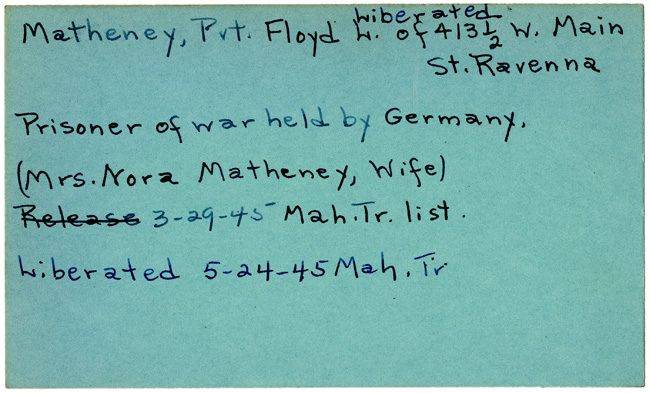 Liberated
Matheney, Pvt. Floyd L. of 413 1/2 W. Main
St. Ravenna
Prisoner of war held by Germany.
(Mrs. Nora Matheney, Wife)
Release 3-29-45 Mah. Tr. list.
Liberated 5-24-45 Mah. Tr